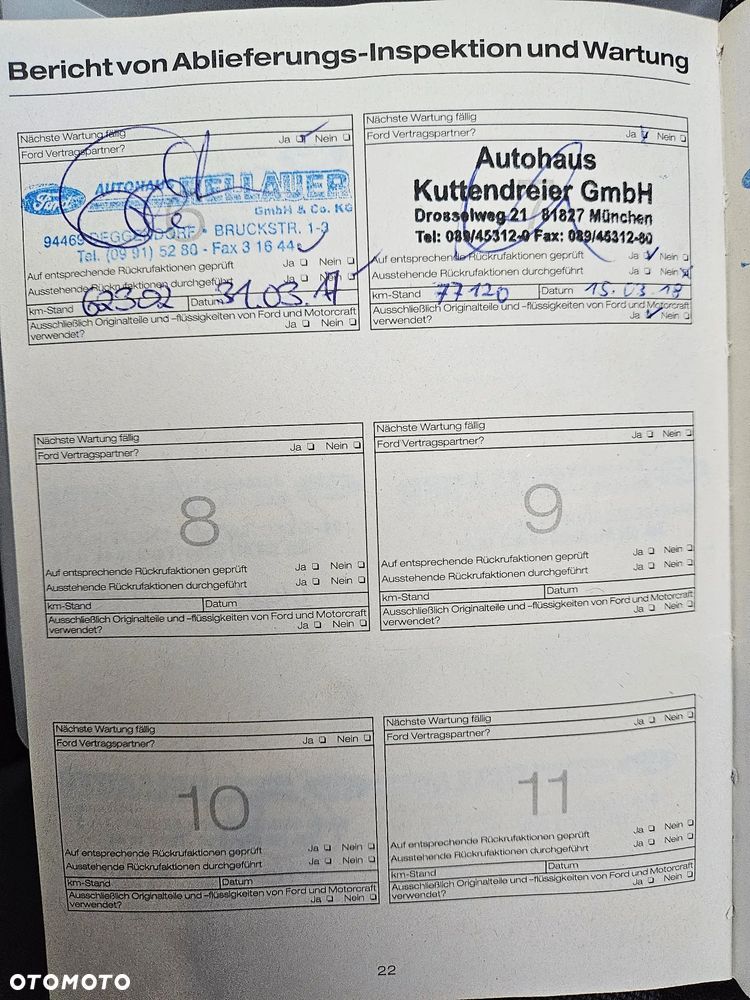 Bericht von Ablieferungs-Inspektion und Wartung
Nächste Wartung fällig
Ford Vertragspartner? Ja Nein
Ford
AUTOHAUS HELLAUER
GmbH & Co. KG
94469 DEGGENDORF • BRUCKSTR. 1-3
Tel. (09 91) 52 80 - Fax 3 16 44
Auf entsprechende Rückrufaktionen geprüft Ja Nein
Ausstehende Rückrufaktionen durchgeführt Ja Nein
km-Stand 62302 Datum 31.03.17
Ausschließlich Originalteile und -flüssigkeiten von Ford und Motorcraft
verwendet? Ja Nein
Nächste Wartung fällig
Ford Vertragspartner? Ja Nein
Autohaus
Kuttendreier GmbH
Drosselweg 21 81827 München
Tel: 089/45312-0 Fax: 089/45312-80
Auf entsprechende Rückrufaktionen geprüft Ja Nein
Ausstehende Rückrufaktionen durchgeführt Ja Nein
km-Stand 77120 Datum 15.03.18
Ausschließlich Originalteile und -flüssigkeiten von Ford und Motorcraft
verwendet? Ja Nein
Nächste Wartung fällig
Ford Vertragspartner? Ja Nein
8
Auf entsprechende Rückrufaktionen geprüft Ja Nein
Ausstehende Rückrufaktionen durchgeführt Ja Nein
km-Stand Datum
Ausschließlich Originalteile und -flüssigkeiten von Ford und Motorcraft
verwendet? Ja Nein
Nächste Wartung fällig
Ford Vertragspartner? Ja Nein
9
Auf entsprechende Rückrufaktionen geprüft Ja Nein
Ausstehende Rückrufaktionen durchgeführt Ja Nein
km-Stand Datum
Ausschließlich Originalteile und -flüssigkeiten von Ford und Motorcraft
verwendet? Ja Nein
Nächste Wartung fällig
Ford Vertragspartner? Ja Nein
10
Auf entsprechende Rückrufaktionen geprüft Ja Nein
Ausstehende Rückrufaktionen durchgeführt Ja Nein
km-Stand Datum
Ausschließlich Originalteile und -flüssigkeiten von Ford und Motorcraft
verwendet? Ja Nein
Nächste Wartung fällig
Ford Vertragspartner? Ja Nein
11
Auf entsprechende Rückrufaktionen geprüft Ja Nein
Ausstehende Rückrufaktionen durchgeführt Ja Nein
km-Stand Datum
Ausschließlich Originalteile und -flüssigkeiten von Ford und Motorcraft
verwendet? Ja Nein
22
OTOMOTO